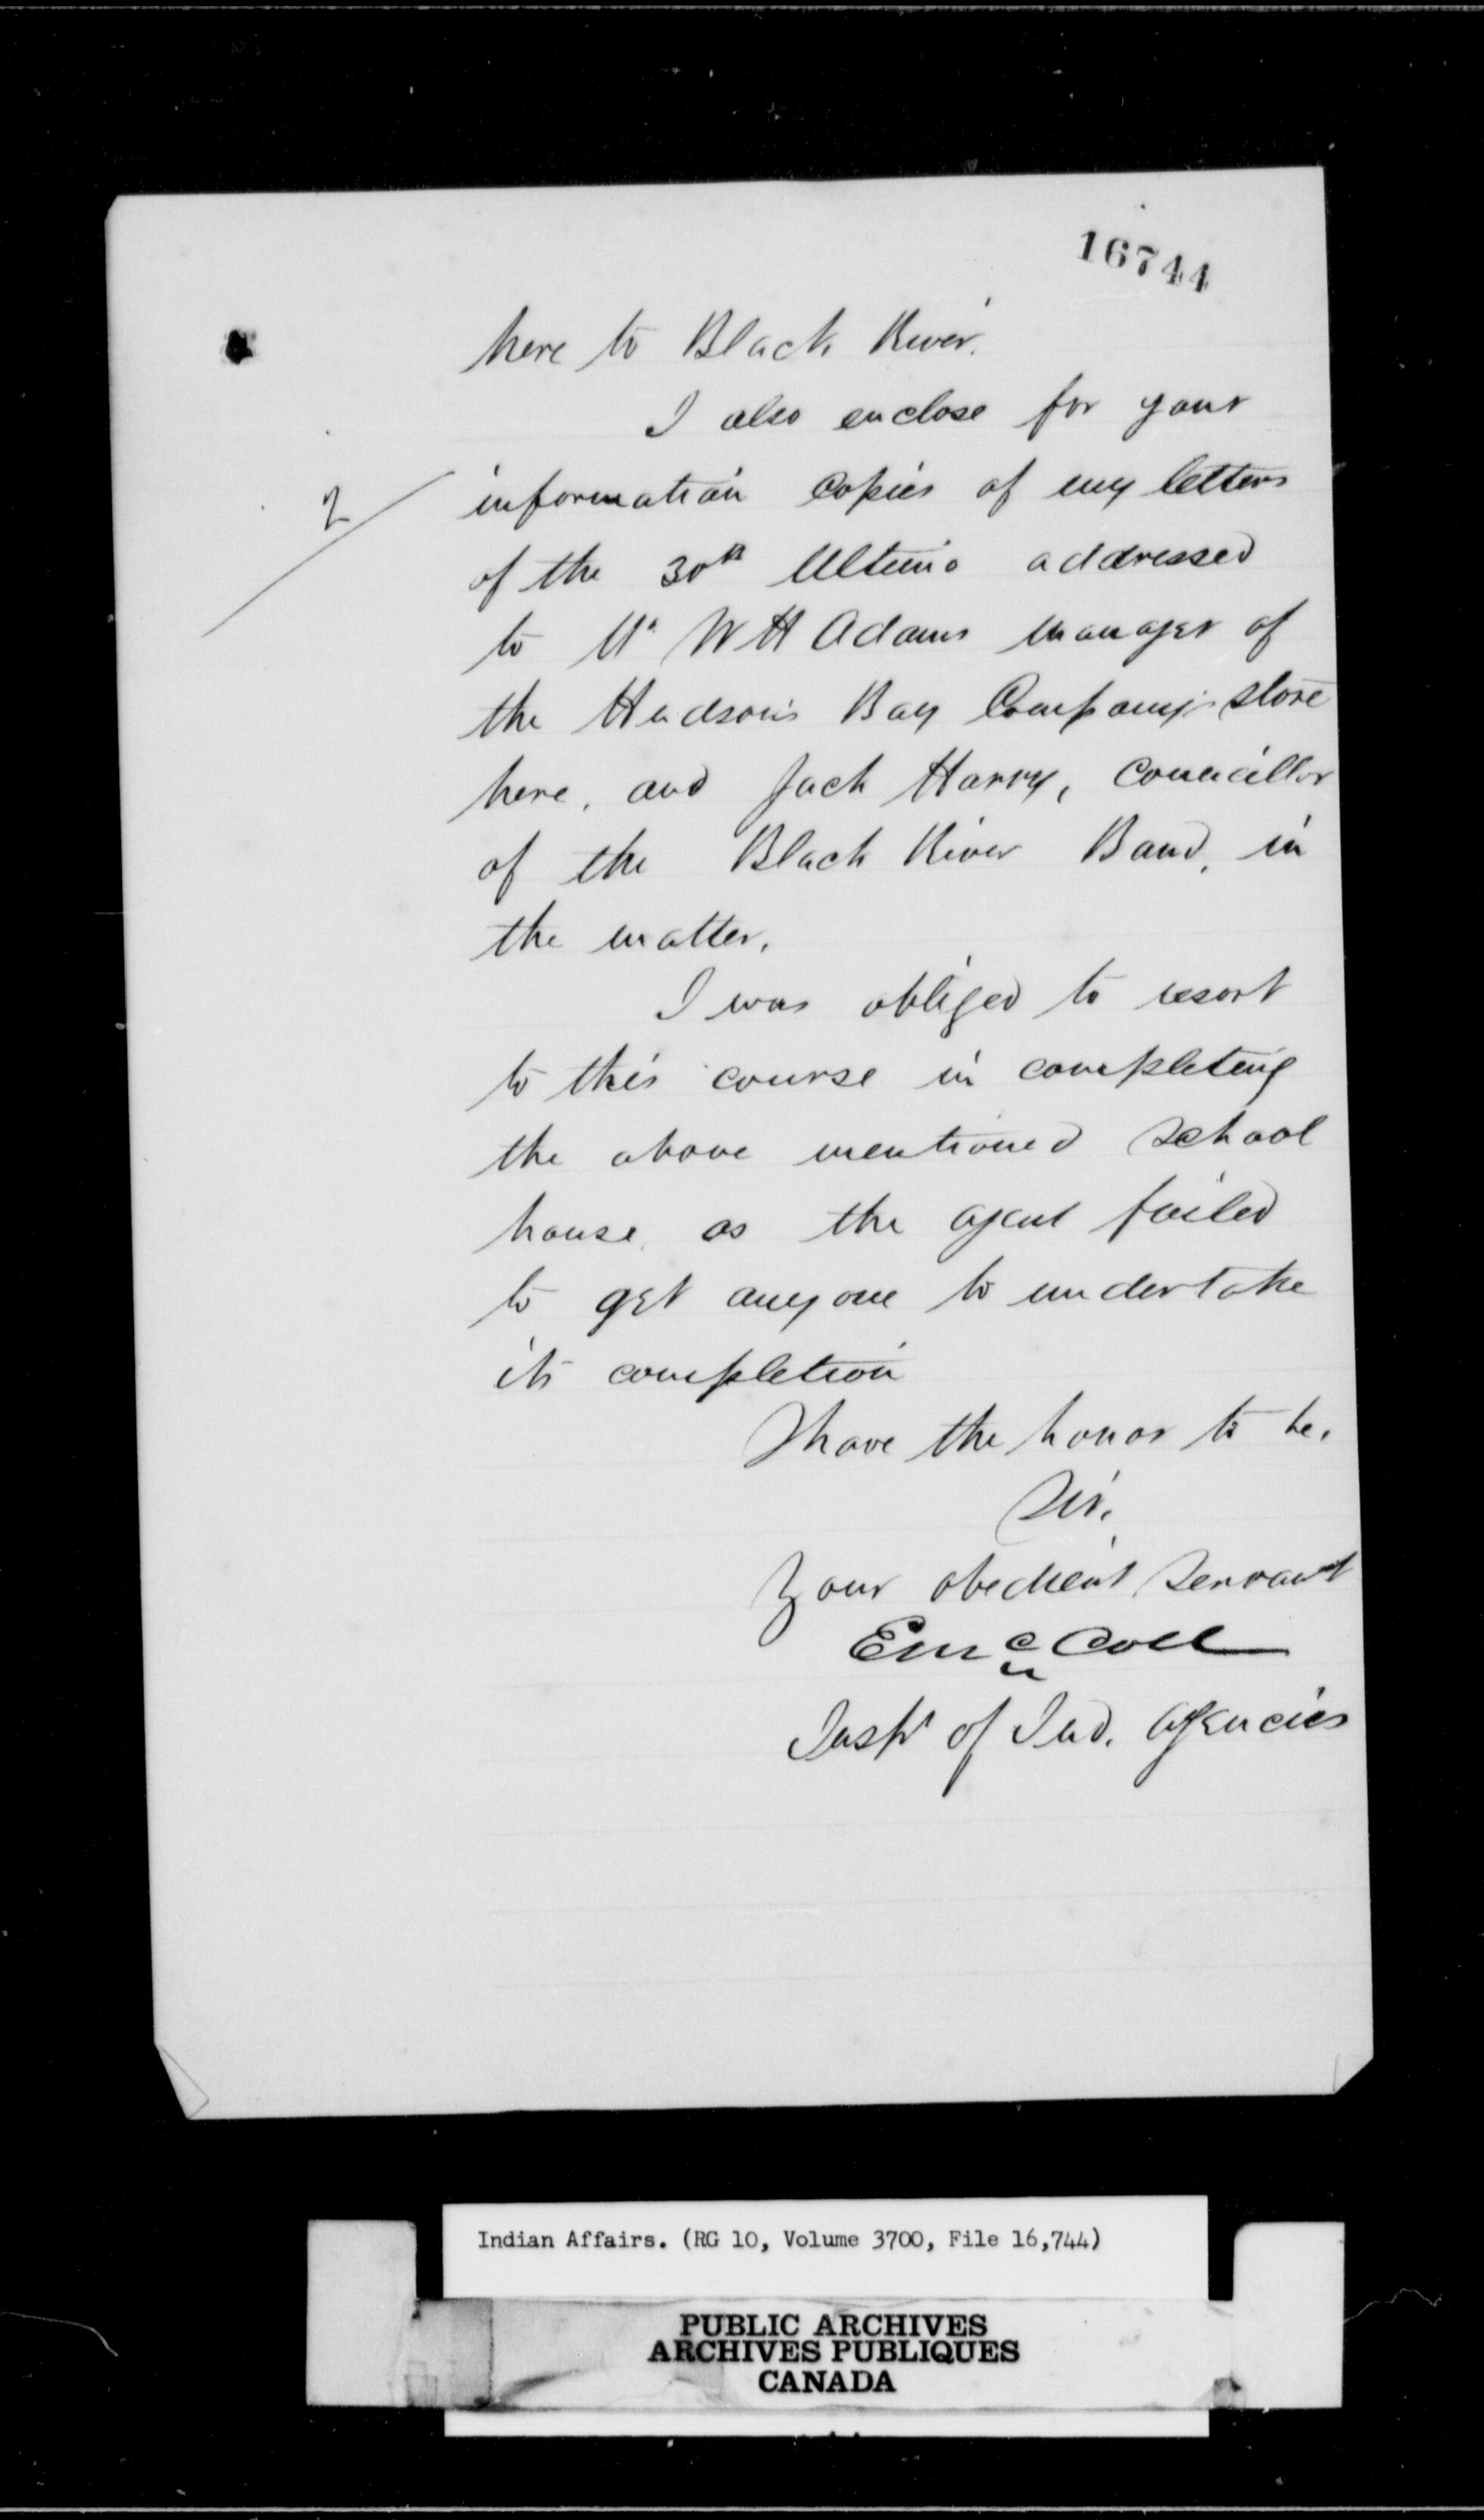 16744
here to Black River.
I also enclose for your
2
information copies of my letters
of the 30th Ultimo addressed
to Mr W H Adams manager of
the Hudson's Bay Company's store
here, and Jack Harry, Councillor
of the Black River Band, in
the matter.
I was obliged to resort
to this course in completing
the above mentioned School
house, as the agent failed
to get anyone to undertake
its completion
I have the honor to be,
Sir,
Your obedient Servant
E McColl
Inspr of Ind. Agencies
Indian Affairs. (RG 10, Volume 3700, File 16,744)
PUBLIC ARCHIVES
ARCHIVES PUBLIQUES
CANADA